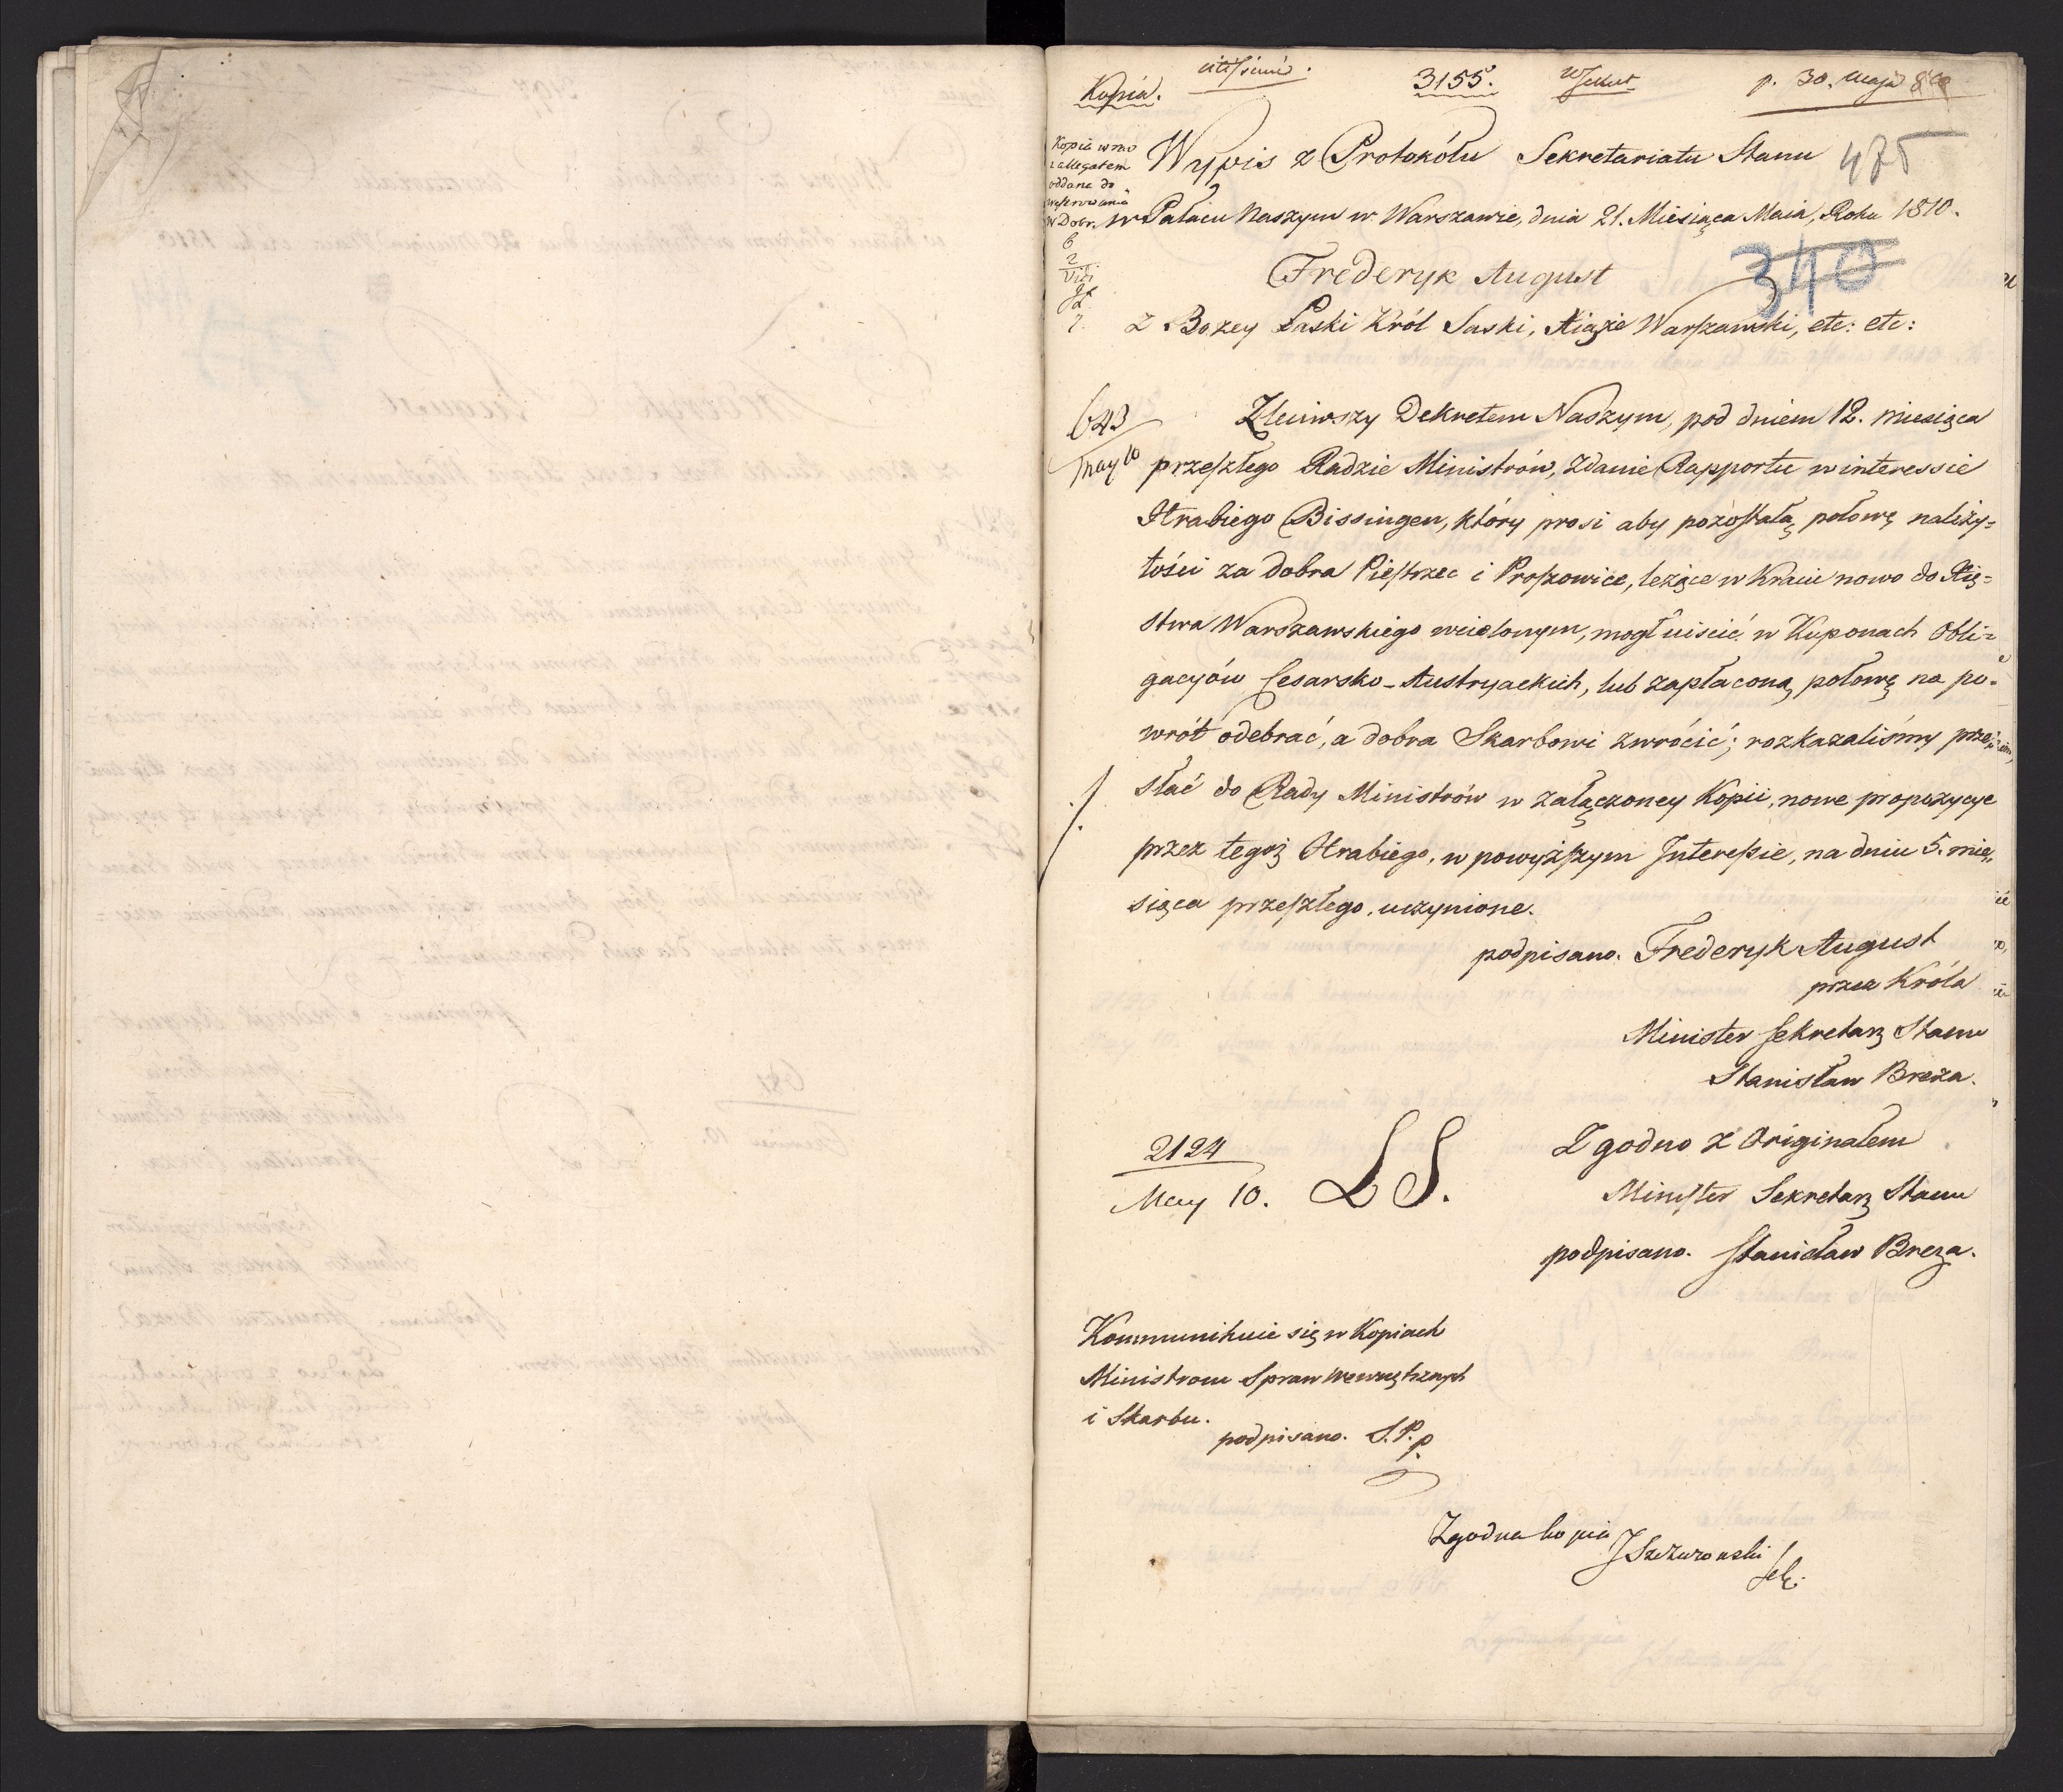 Kopia.
3155.
p. 30. maja 810
Kopia wraz
z allegatem
oddana do
W Dobr.
6
2
Wypis z Protokółu Sekretariatu Stanu
475
w Pałacu Naszym w Warszawie, dnia 21. Miesiąca Maia, Roku 1810.
Frederyk August
340
z Bozey Łaski Król Saski, Xiąże Warszawski, etc: etc:
643
May 10
Zleciwszy Dekretem Naszym, pod dniem 12. miesiąca
przeszłego Radzie Ministrów, zdanie Rapportu w interessie
Hrabiego Bissingen, który prosi aby pozostałą połowę należy=
tości za dobra Piestrzec i Proszowice, leżące w Kraiu nowo do Xię=
stwa Warszawskiego wcielonym, mogł uiścić w Kuponach Obli=
gacyów Cesarsko-Austryackich, lub zapłaconą połowę na po=
wrót odebrać, a dobra Skarbowi zwrócić; rozkazaliśmy prze=
słać do Rady Ministrów w załączoney Kopii, nowe propozycye
przez tegoż Hrabiego, w powyższym Interesie, na dniu 5. mie=
siąca przeszłego, uczynione.
podpisano. Frederyk August
przez Króla
Minister Sekretarz Stanu
Stanisław Breza.
2124
May 10.
LS.
Zgodno z Originałem
Minister Sekretarz Stanu
podpisano. Stanisław Breza.
Kommunikuie się w Kopiach
Ministrom Spraw Wewnętrznych
i Skarbu.
podpisano. S. P. p.
Zgodna kopia